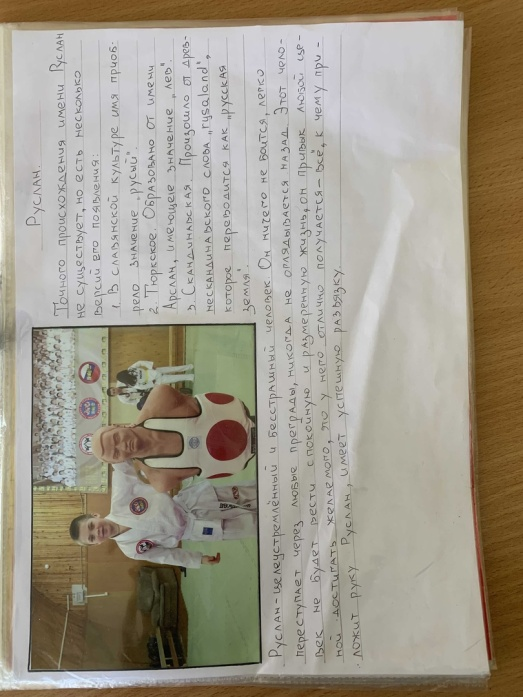 Руслан.
Точного происхождения имени Руслан
не существует, но есть несколько
версий его появления:
1. В славянской культуре имя приоб-
рело значение „русый"
2. Тюркское. Образовано от имени
Арслан, имеющее значение „лев".
3. Скандинавская. Произошло от древ-
нескандинавского слова „rysaland",
которое переводится как „русская
земля"
Руслан - целеустремлённый и бесстрашный человек Он ничего не боится, легко
переступает через любые преграды, никогда не оглядывается назад. Этот чело-
век не будет вести спокойную и размеренную жизнь, он привык любой це-
ной достигать желаемого, то у него отлично получается - всё, к чему при-
ложит руку Руслан, имеет успешную развязку.